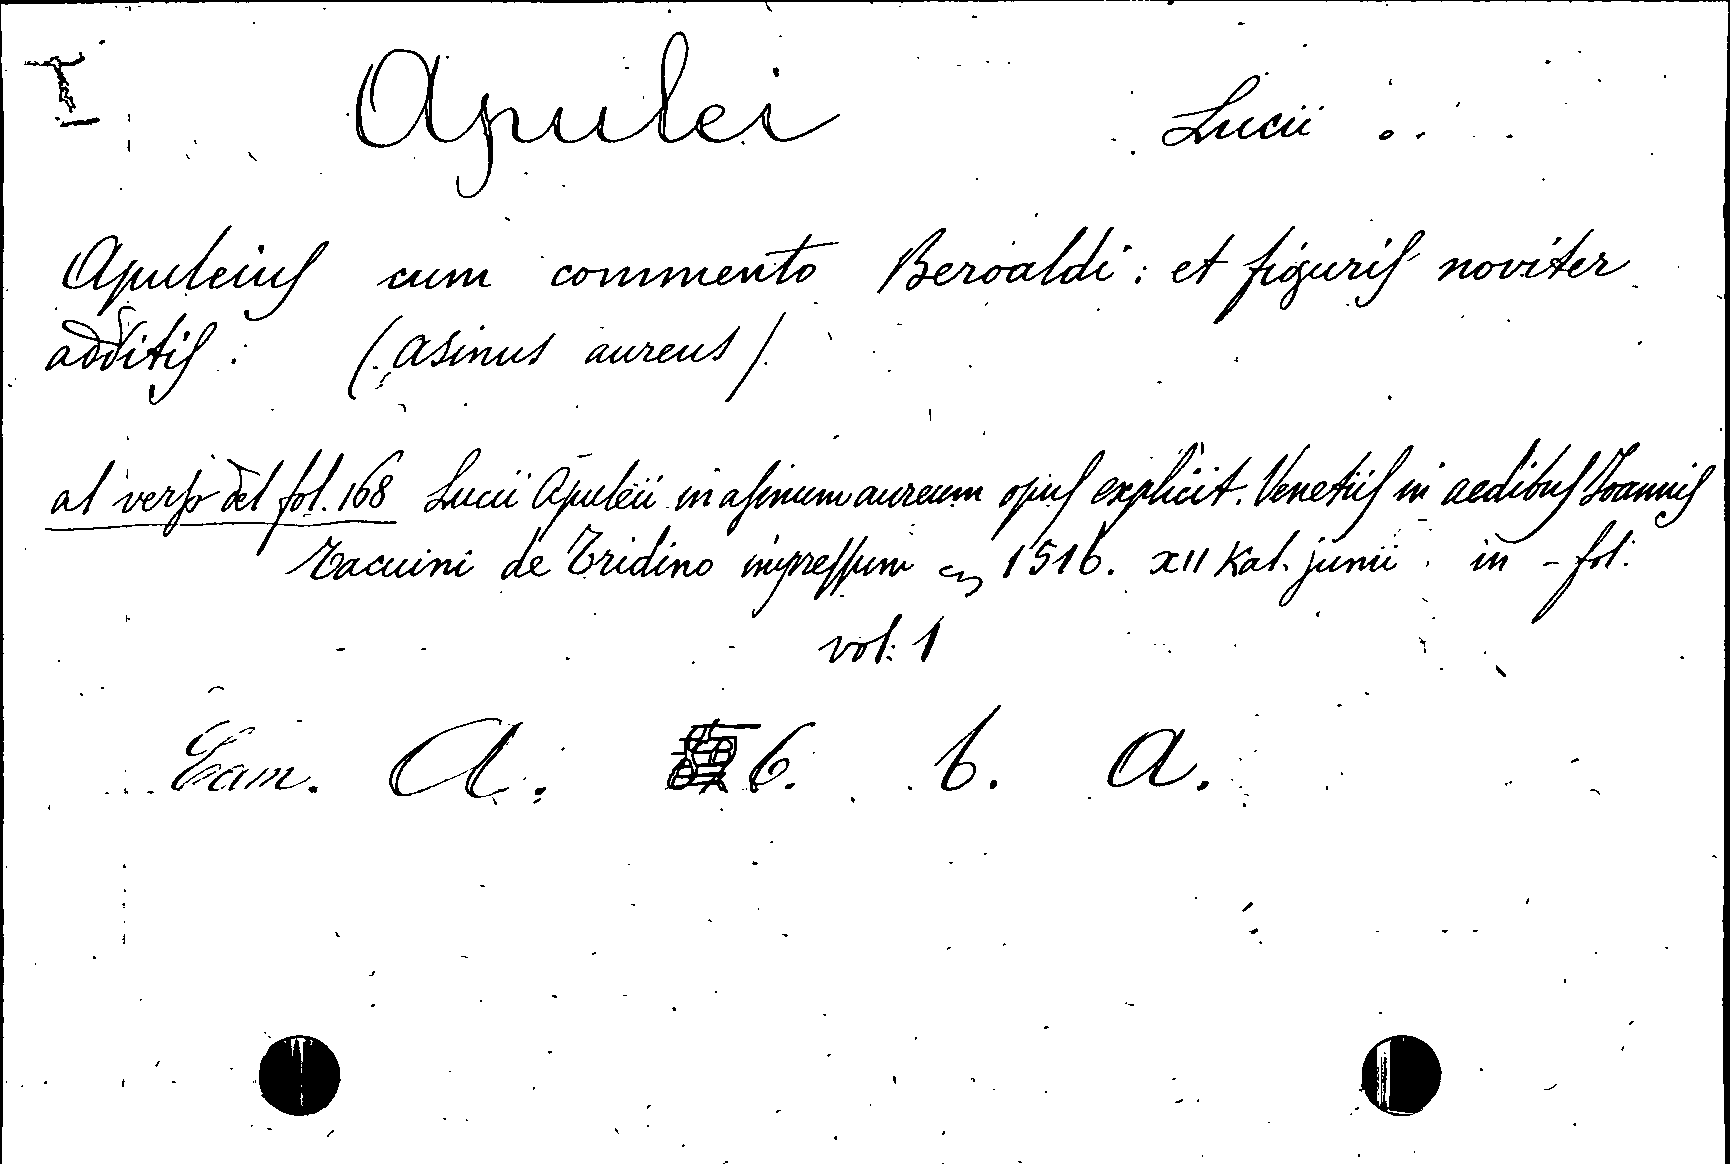 I Apulei Lucii
Apuleius cum commento Beroaldi: et figuris noviter
additis: (Asinus aureus).
al verso del fol. 168 Lucii Apuleii in asinum aureum opus explicit. Venetiis in aedibus Joannis
Tacuini de Tridino impressum 1516. XII Kal. junii. in-fol:
vol: 1
Cam. A. 6. b. a.